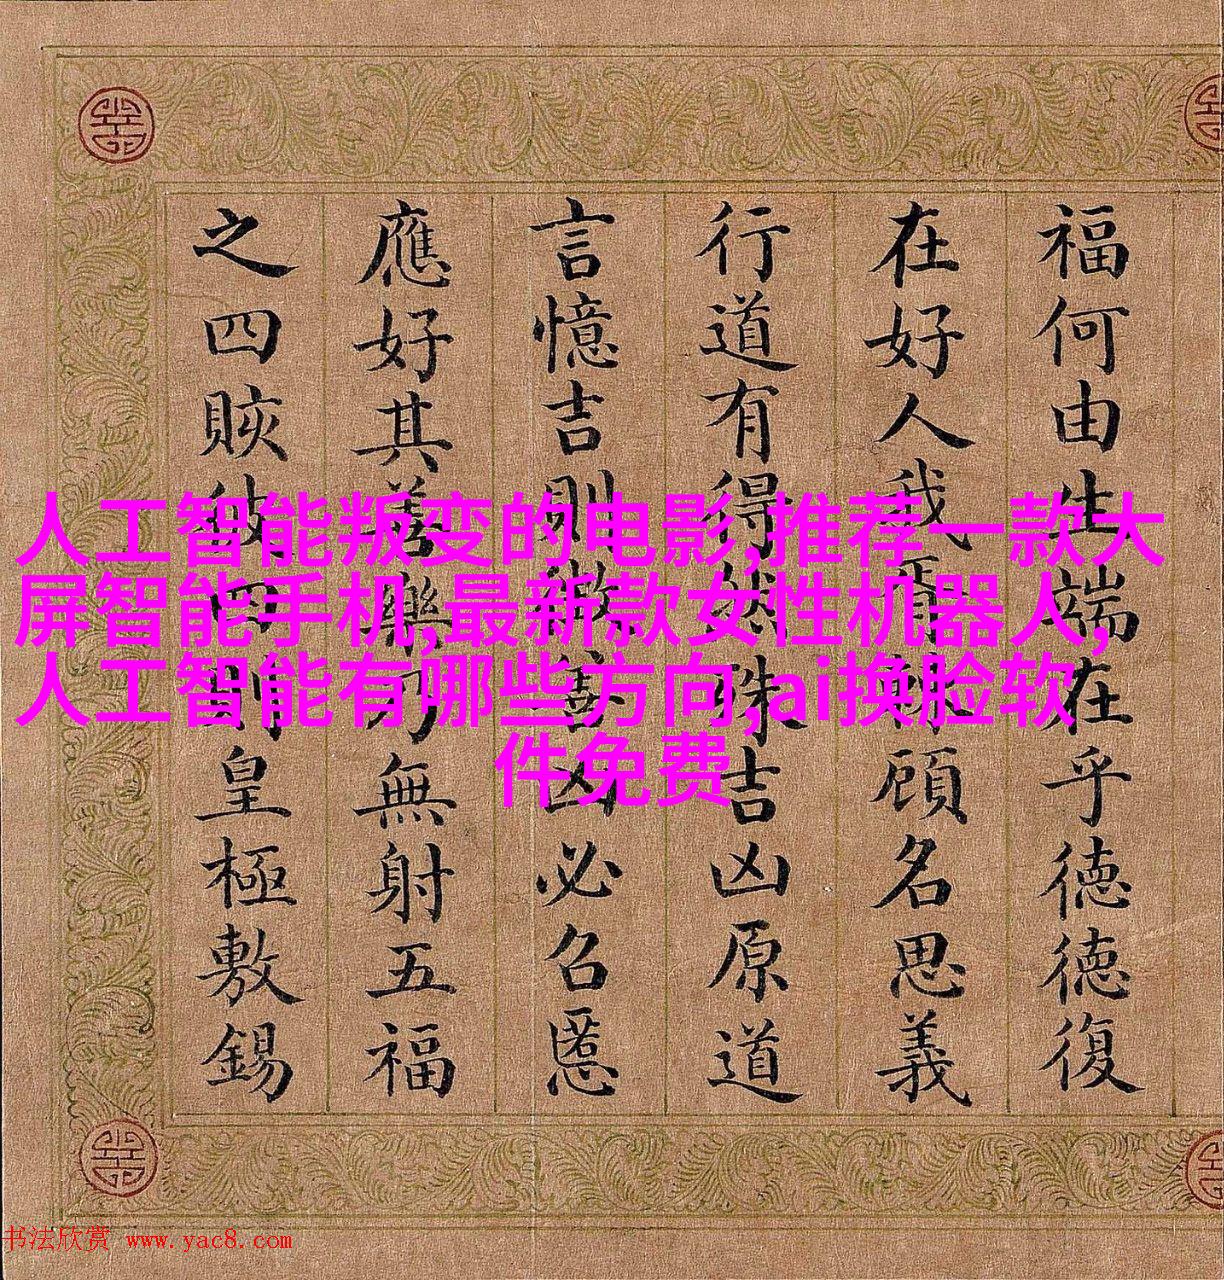 福何由生端在乎德德復
在好人我顧名思義
行道有得殊吉凶原道
言憶吉則善凶必召慝
應好其善樂乃無射五福
之四賅彼四則皇極敷錫
人工智能叛变的电影,推荐一款大
屏智能手机,最新款女性机器人,
人工智能有哪些方向,ai换脸软
件免费
书法欣赏 www.yac8.com